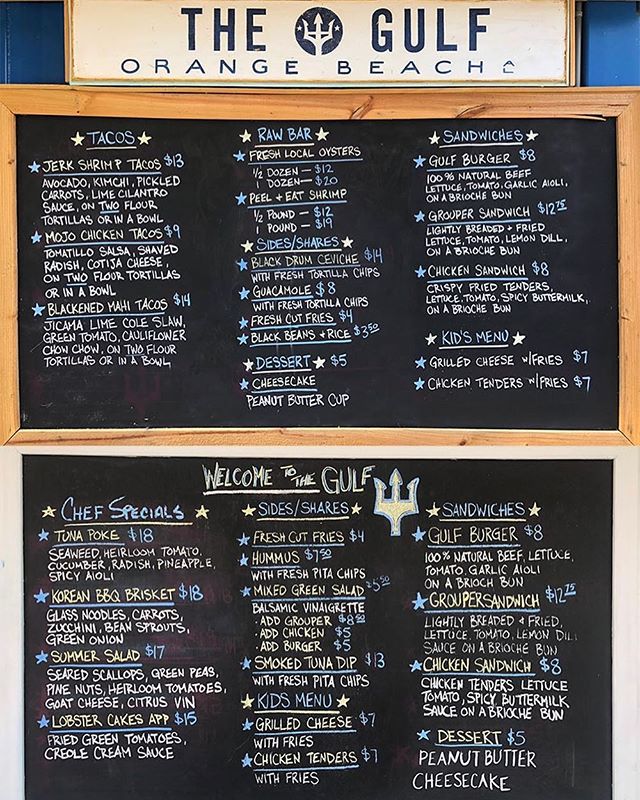 THE GULF
ORANGE BEACH
TACOS
JERK SHRIMP TACOS $13
AVOCADO, KIMCHI, PICKLED
CARROTS, LIME CILANTRO
SAUCE, ON TWO FLOUR
TORTILLAS OR IN A BOWL
MOJO CHICKEN TACOS $9
TOMATILLO SALSA, SHAVED
RADISH, COTIJA CHEESE,
ON TWO FLOUR TORTILLAS
OR IN A BOWL
BLACKENED MAHI TACOS $14
JICAMA LIME COLE SLAW,
GREEN TOMATO, CAULIFLOWER
CHOW CHOW, ON TWO FLOUR
TORTILLAS OR IN A BOWL
RAW BAR
FRESH LOCAL OYSTERS
1/2 DOZEN — $12
1 DOZEN — $20
PEEL + EAT SHRIMP
1/2 POUND — $12
1 POUND — $19
SIDES/SHARES
BLACK DRUM CEVICHE $14
WITH FRESH TORTILLA CHIPS
GUACAMOLE $8
WITH FRESH TORTILLA CHIPS
FRESH CUT FRIES $4
BLACK BEANS + RICE $3.50
DESSERT $5
CHEESECAKE
PEANUT BUTTER CUP
SANDWICHES
GULF BURGER $8
100% NATURAL BEEF
LETTUCE, TOMATO, GARLIC AIOLI,
ON A BRIOCHE BUN
GROUPER SANDWICH $12.75
LIGHTLY BREADED + FRIED
LETTUCE, TOMATO, LEMON DILL,
ON A BRIOCHE BUN
CHICKEN SANDWICH $8
CRISPY FRIED TENDERS,
LETTUCE, TOMATO, SPICY BUTTERMILK,
ON A BRIOCHE BUN
KID'S MENU
GRILLED CHEESE W/FRIES $7
CHICKEN TENDERS W/FRIES $7
WELCOME TO THE GULF
CHEF SPECIALS
TUNA POKE $18
SEAWEED, HEIRLOOM TOMATO,
CUCUMBER, RADISH, PINEAPPLE,
SPICY AIOLI
KOREAN BBQ BRISKET $18
GLASS NOODLES, CARROTS,
ZUCCHINI, BEAN SPROUTS,
GREEN ONION
SUMMER SALAD $17
SEARED SCALLOPS, GREEN PEAS,
PINE NUTS, HEIRLOOM TOMATOES,
GOAT CHEESE, CITRUS VIN
LOBSTER CAKES APP $15
FRIED GREEN TOMATOES,
CREOLE CREAM SAUCE
SIDES/SHARES
FRESH CUT FRIES $4
HUMMUS $7.50
WITH FRESH PITA CHIPS
MIXED GREEN SALAD $5.50
BALSAMIC VINAIGRETTE
· ADD GROUPER $8.50
· ADD CHICKEN $5
· ADD BURGER $5
SMOKED TUNA DIP $13
WITH FRESH PITA CHIPS
KIDS MENU
GRILLED CHEESE $7
WITH FRIES
CHICKEN TENDERS $7
WITH FRIES
SANDWICHES
GULF BURGER $8
100% NATURAL BEEF, LETTUCE,
TOMATO, GARLIC AIOLI
ON A BRIOCH BUN
GROUPER SANDWICH $12.75
LIGHTLY BREADED + FRIED,
LETTUCE, TOMATO, LEMON DILL
SAUCE ON A BRIOCHE BUN
CHICKEN SANDWICH $8
CHICKEN TENDERS LETTUCE
TOMATO, SPICY BUTTERMILK
SAUCE ON A BRIOCHE BUN
DESSERT $5
PEANUT BUTTER
CHEESECAKE